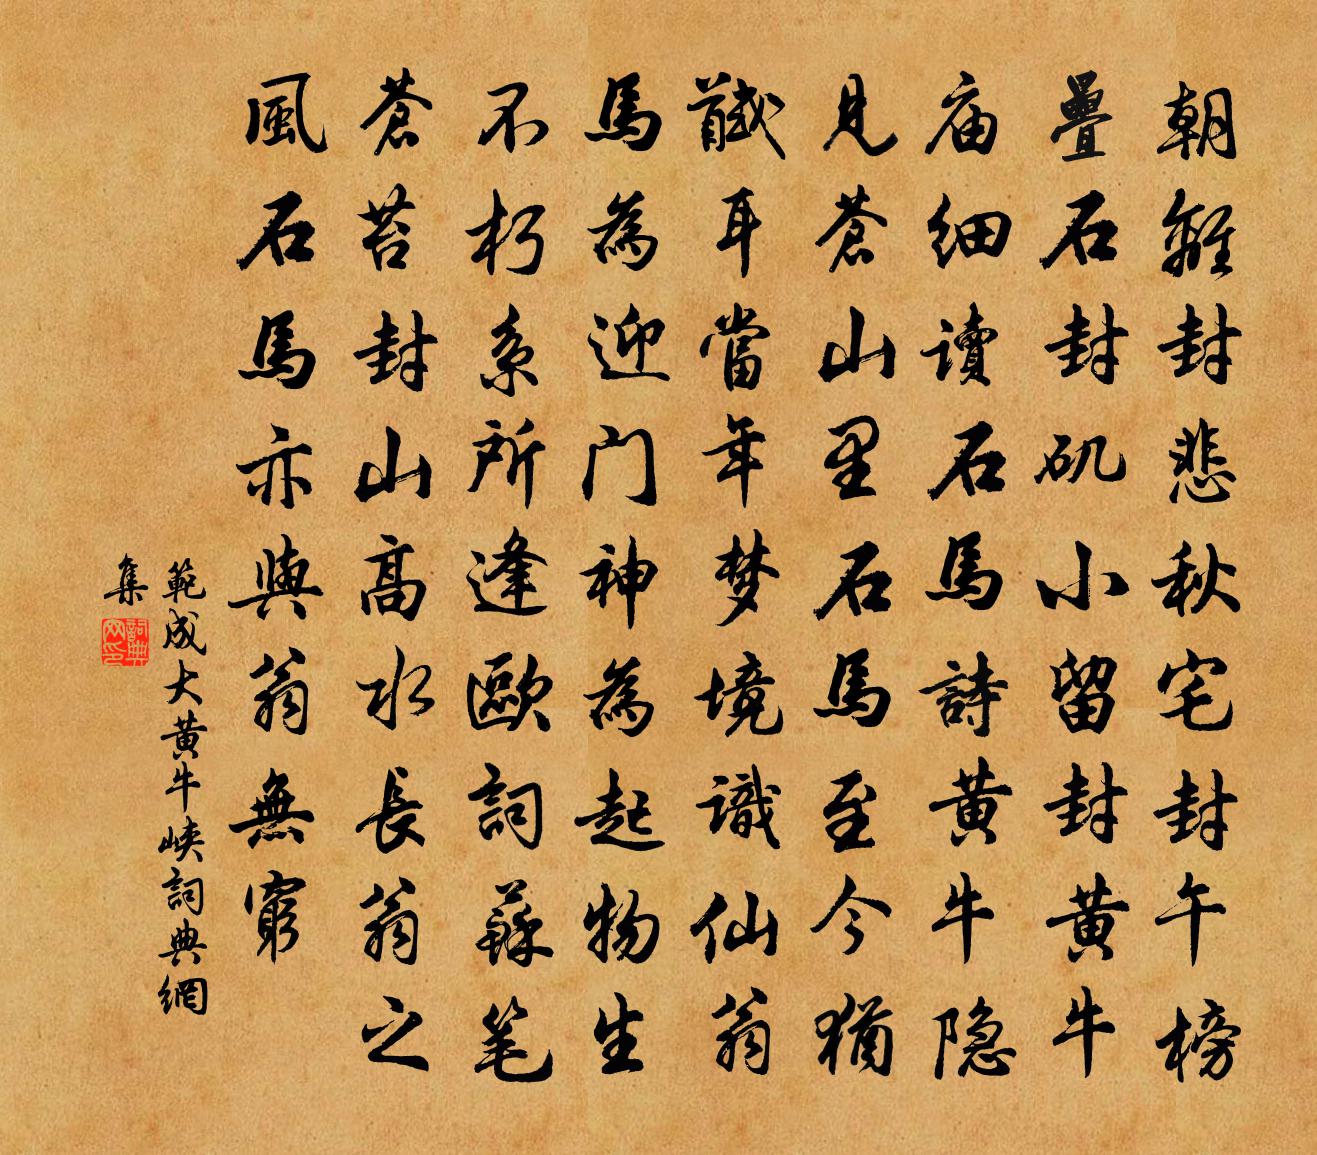 朝離封悲秋宅封午榜
疊石封矶小留封黄牛
庙細讀石馬詩黄牛隐
見蒼山里石馬至今猶
馘耳當年梦境識仙翁
馬為迎门神為起物生
不朽系所逢歐詞蘇笔
蒼苔封山高水長翁之
風石馬亦與翁無窮
範成大黄牛峡詞典網
集
詞典
网印